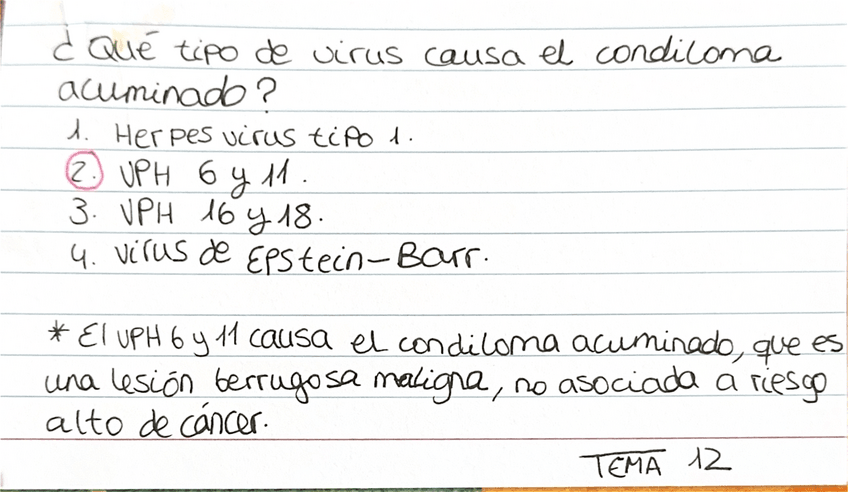 ¿Qué tipo de virus causa el condiloma
acuminado?
1. Herpes virus tipo 1.
2. VPH 6 y 11.
3. VPH 16 y 18.
4. virus de Epstein-Barr.
* El VPH 6 y 11 causa el condiloma acuminado, que es
una lesión berrugosa maligna, no asociada a riesgo
alto de cáncer.
TEMA 12